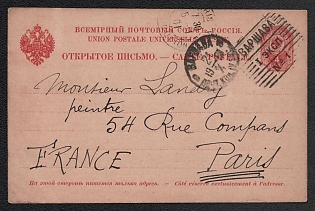 ВСЕМІРНЫЙ ПОЧТОВЫЙ СОЮЗЪ. РОССІЯ.
UNION POSTALE UNIVERSELLE. RUSSIE.
ОТКРЫТОЕ ПИСЬМО. — CARTE POSTALE.
ВАРШАВА
ВАРШАВА
Monsieur Landry
peintre
54 Rue Compans
FRANCE Paris
На этой сторонѣ пишется только адресъ. — Côté réservé exclusivement à l'adresse.